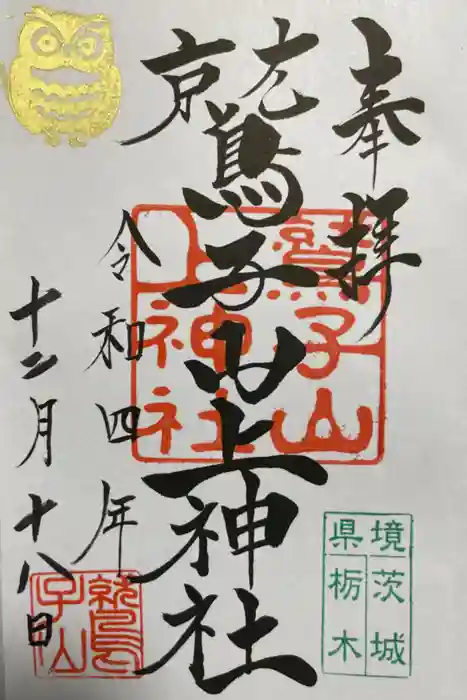 奉拝
鷲子山上神社
令和四年
十二月十八日
鷲子山
上神社
県境
茨城
栃木
鷲
子山